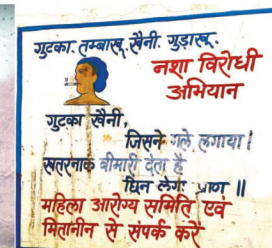 गुटका.तम्बाखू.खैनी. गुड़ाखू.
नशा विरोधी
अभियान
गुटका खैनी,
जिसने गले लगाया।
खतरनाक बीमारी देता है
छिन लेगा प्राण ॥
महिला आरोग्य समिति एवं
मितानीन से संपर्क करें